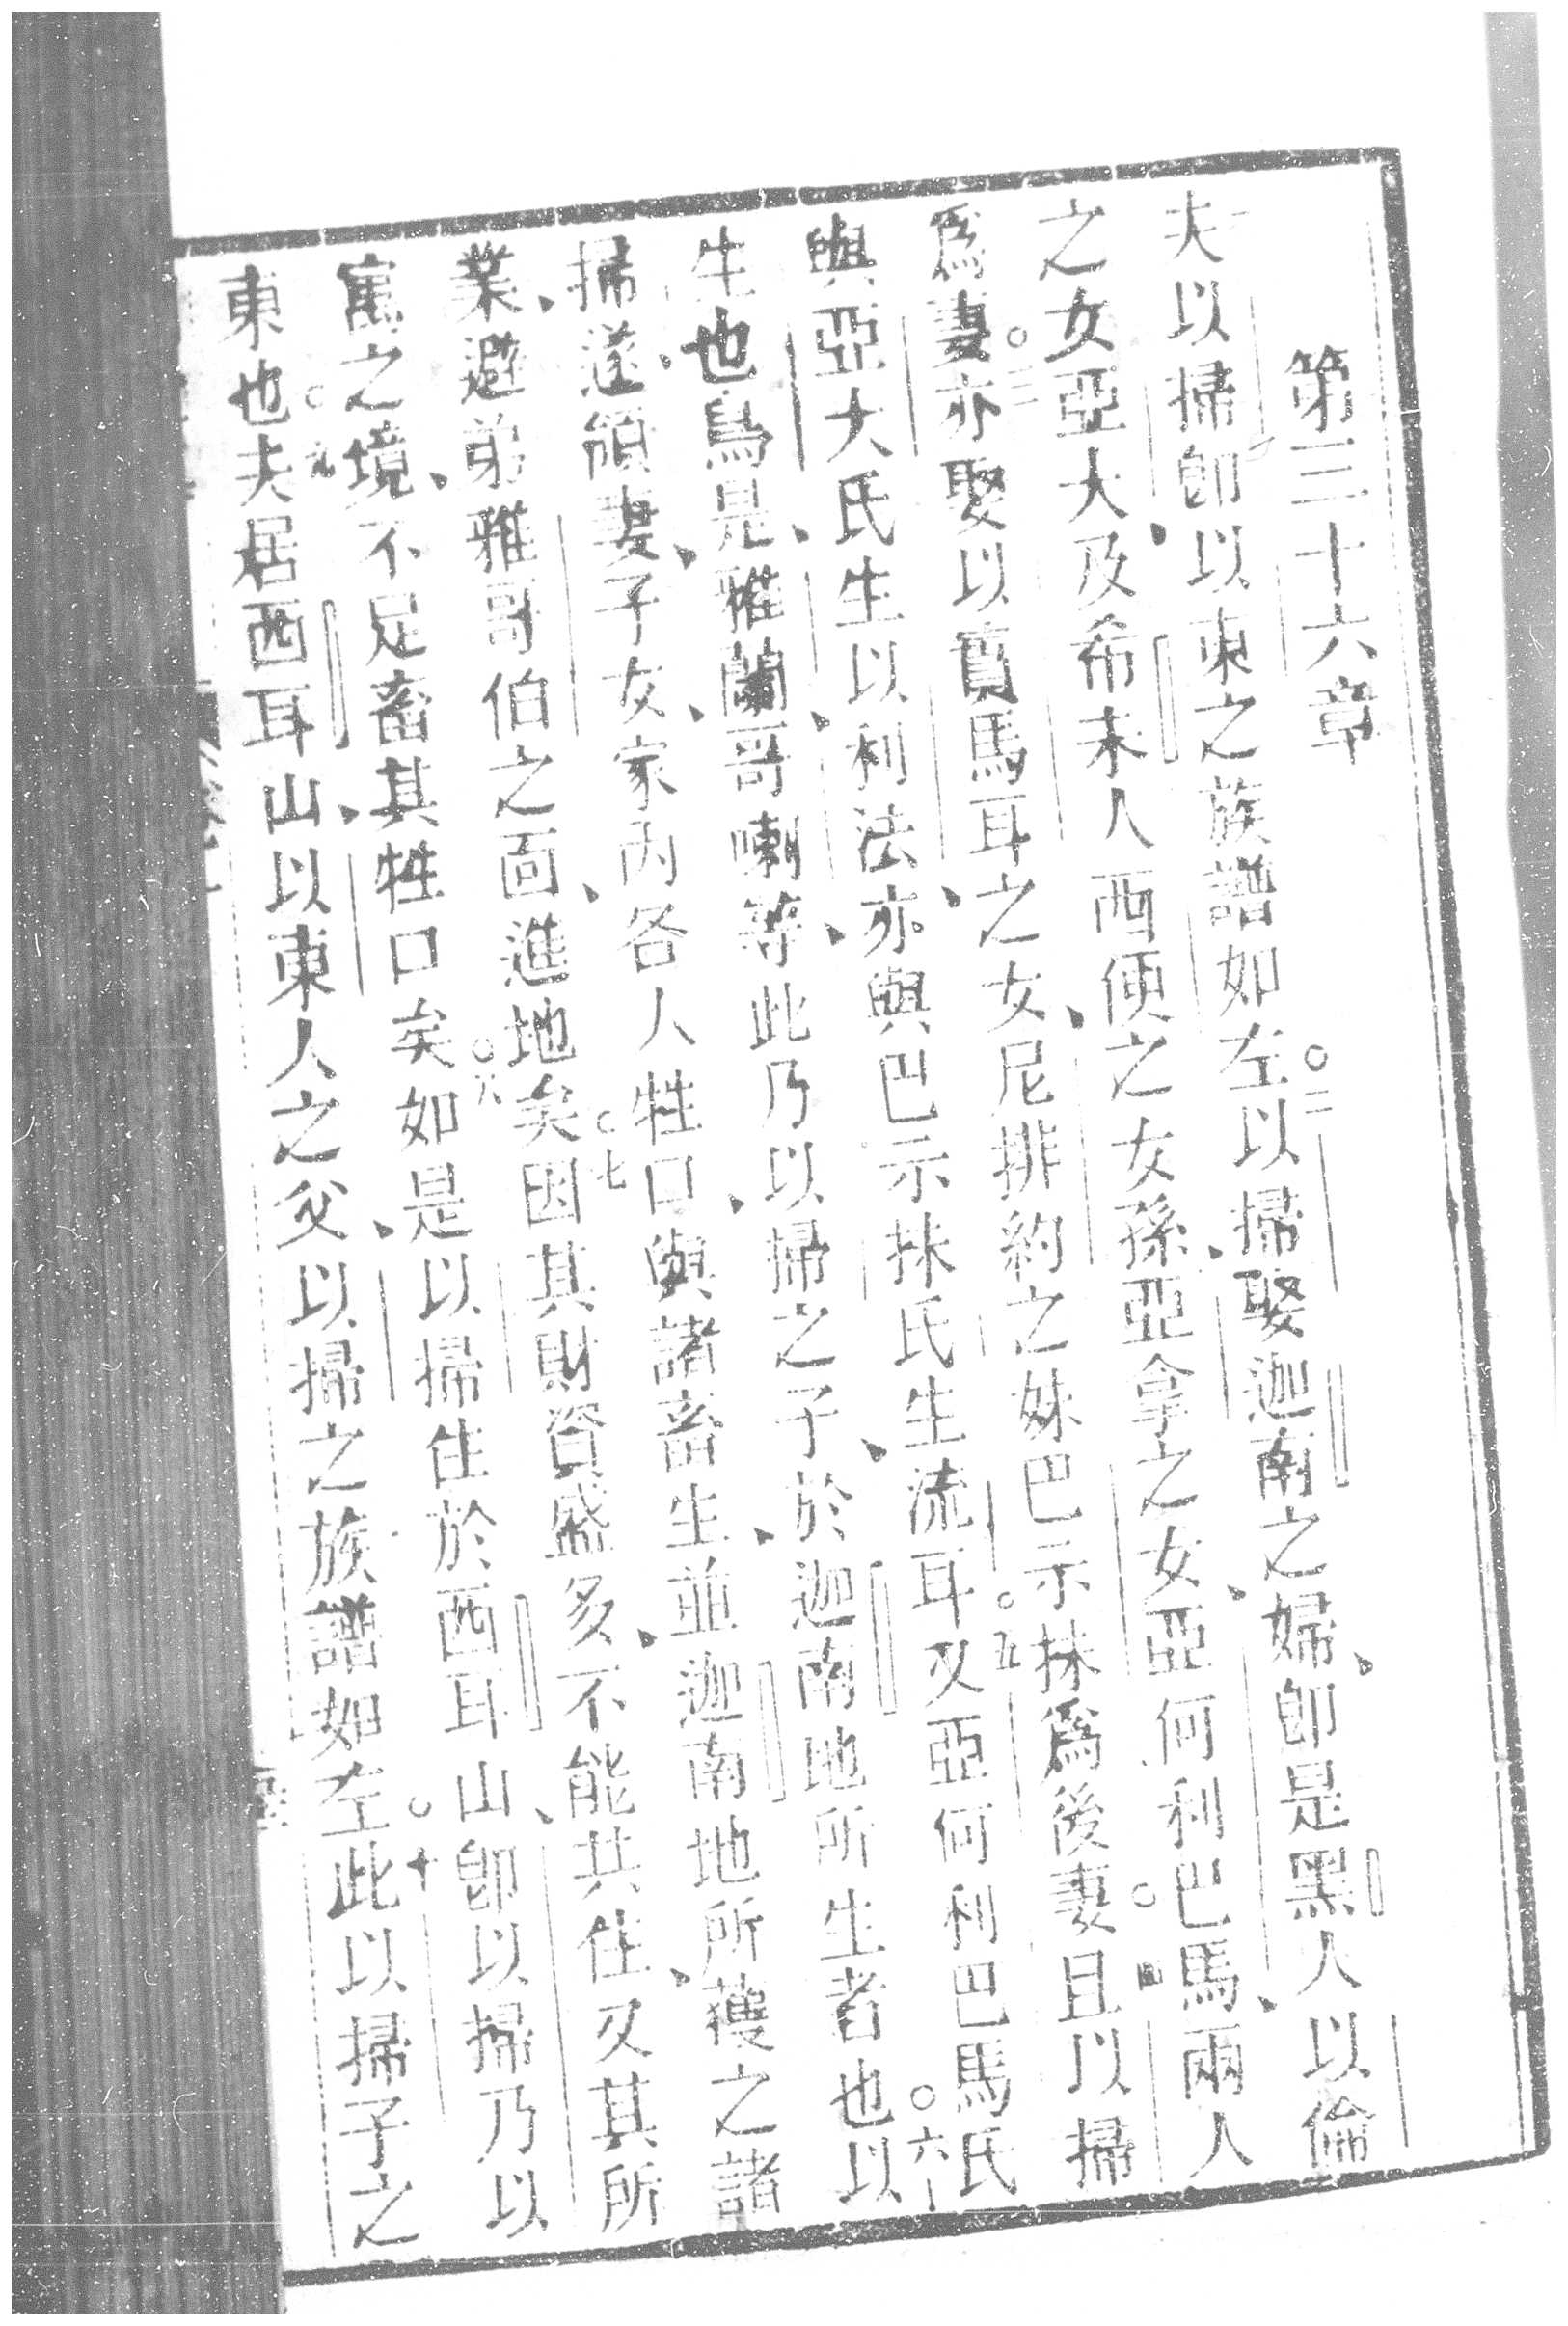 第三十六章
一夫以掃卽以東之族譜如左〇二以掃娶迦南之婦、卽是黑人以倫
之女亞大、及希未人西便之女孫、亞拿之女、亞何利巴馬、兩人
爲妻〇三亦娶以實馬耳之女、尼排約之妹巴示抹爲後妻〇四且以掃
與亞大氏、生以利法、亦與巴示抹氏生流耳〇五又亞何利巴馬氏
生也鳥是、雅蘭、哥喇等、此乃以掃之子、於迦南地所生者也〇六以
掃遂領妻、子女、家內各人牲口、與諸畜生、並迦南地所獲之諸
業、避弟雅哥伯之面、進地矣〇七因其財資盛多、不能共住、又其所
寓之境、不足畜其牲口矣〇八如是以掃住於西耳山、卽以掃乃以
東也〇九夫居西耳山、以東人之父、以掃之族譜如左〇十此以掃子之